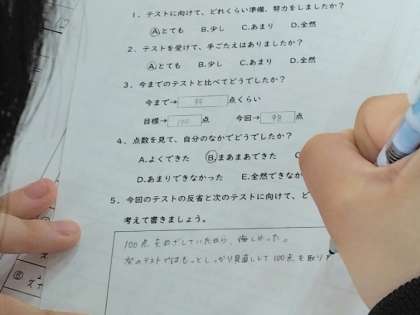 1．テストに向けて、どれくらい準備、努力をしましたか？
A.とても B.少し C.あまり D.全然
2．テストを受けて、手ごたえはありましたか？
A.とても B.少し C.あまり D.全然
3．今までのテストと比べてどうでしたか？
今まで→ 点くらい
目標→ 100 点 今回→ 98 点
4．点数を見て、自分のなかでどうでしたか？
A.よくできた B.まあまあできた C
D.あまりできなかった E.全然できなか
5．今回のテストの反省と次のテストに向けて、ど
考えて書きましょう。
100点をめざしていたから、悔しかった。
次のテストではもっとしっかり見直しして100点を取りた